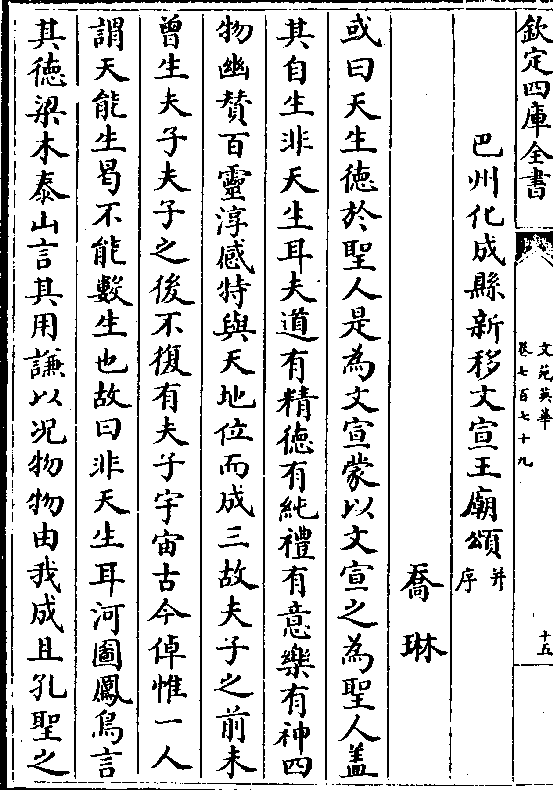 欽定四庫全書
文苑英華
卷七百七十九
十五
巴州化成縣新移文宣王廟頌并序
喬琳
或曰天生徳於聖人是為文宣蒙以文宣之為聖人盖
其自生非天生耳夫道有精徳有純禮有意樂有神四
物幽賛百靈淳感特與天地位而成三故夫子之前未
曾生夫子夫子之後不復有夫子宇宙古今倬惟一人
謂天能生曷不能數生也故曰非天生耳河圖鳳鳥言
其徳梁木泰山言其用謙以况物物由我成且孔聖之